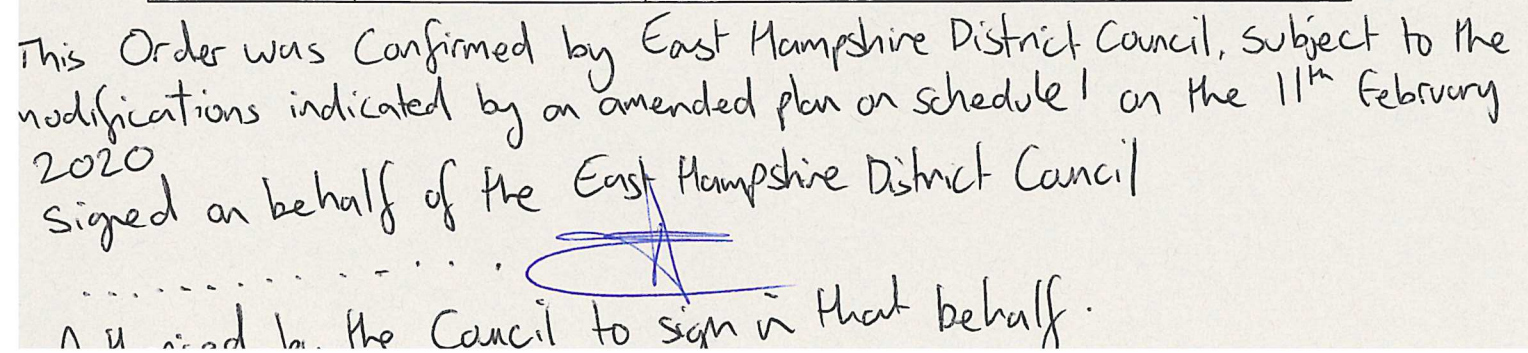 This Order was Confirmed by East Hampshire District Council, subject to the
modifications indicated by an amended plan on schedule 1 on the 11th February
2020
Signed on behalf of the East Hampshire District Council
..............
Authorised by the Council to sign in that behalf.